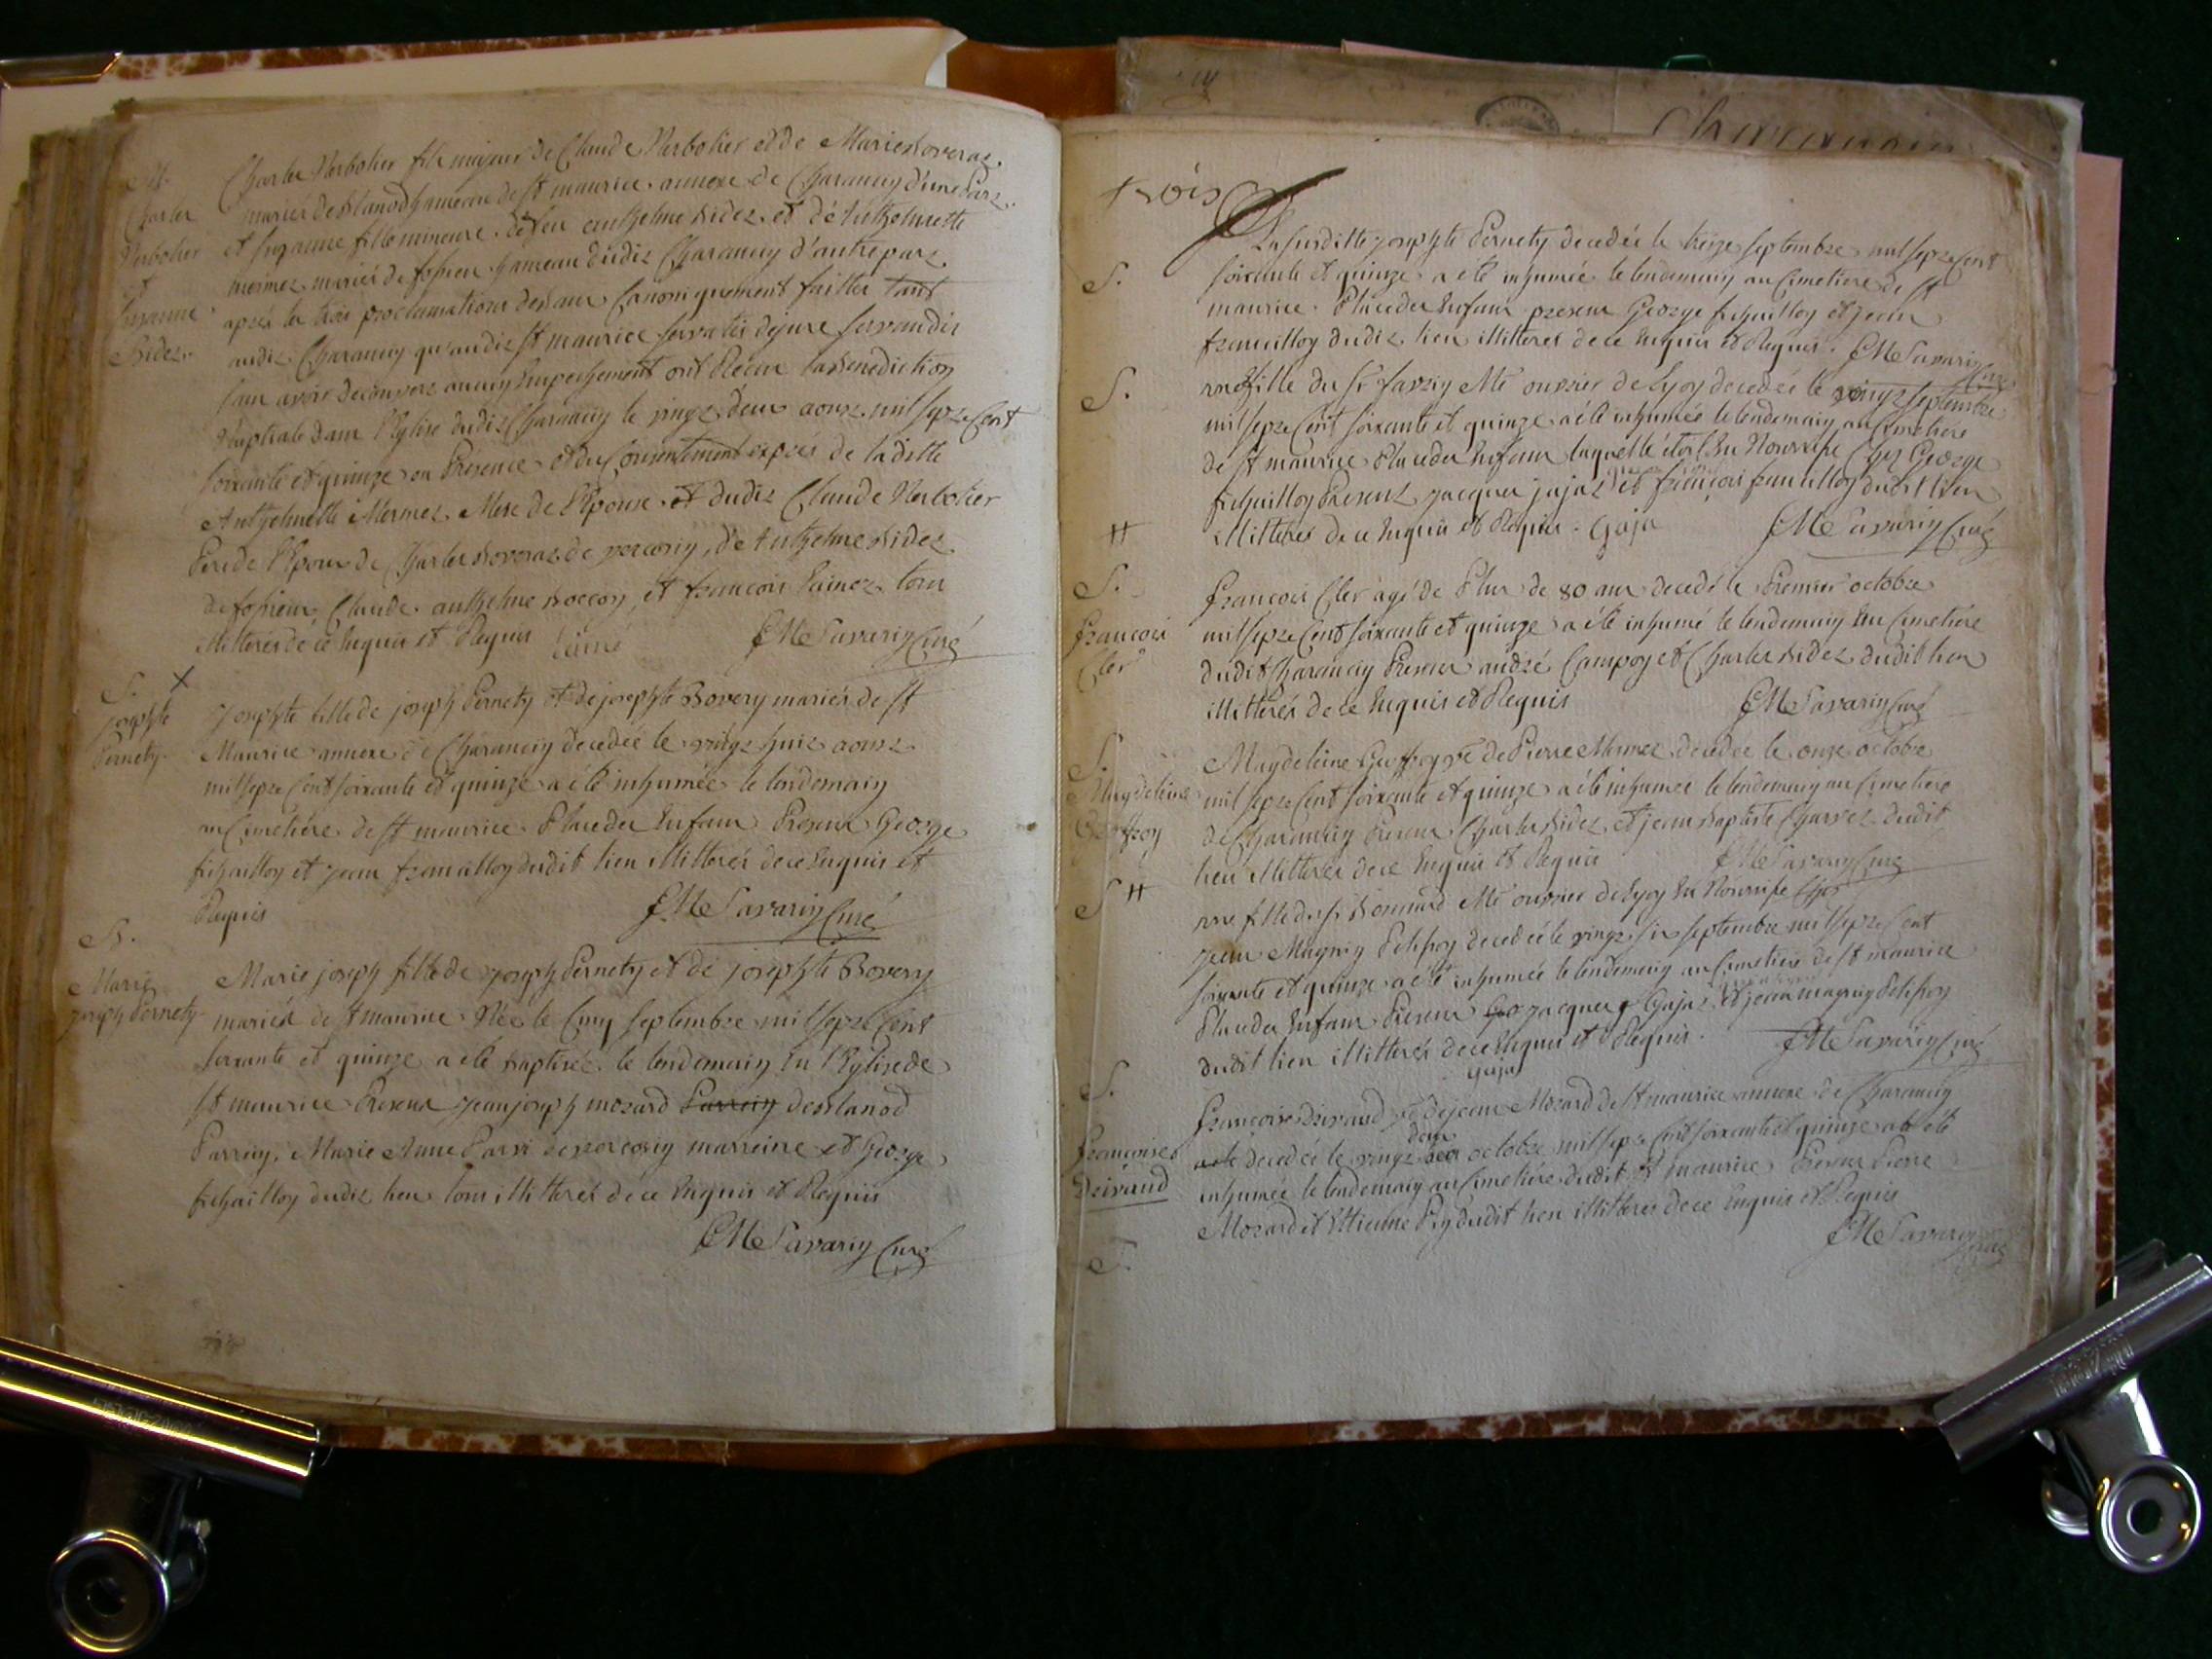 M.
Charles
Verbolier
et
Suzanne
Bidez.
Charles Verbolier fils majeur de Claude Verbolier et de Marie Roveraz.
mariés de hameau de St maurice annexe de Charancin d'une Part.
et Suzanne fille mineure de feu anthelme Bidez et d'Anthelmette
mermez mariés de fosieu hameau dudit Charancin d'autre part.
après les trois proclamations de bans Canoniquement faittes tant
audit Charancin qu'audit St maurice servatis de jure servandis
sans avoir decouvert aucun Empechement ont Recue la Benediction
Nuptiale dans l'Eglise dudit Charancin le vingt deux aoust mil sept Cent
soixante et quinze en Presence et du Consentement exprès de laditte
Anthelmette Mermez Mere de l'Epouse et dudit Claude Verbolier
Pere de l'Epoux de Charles Roveraz de d'Anthelme Bidez
de fosieu, Claude anthelme et francois Lainez tous
illitterés de ce Enquis et Requis Lainé JM Savarin Curé
S. X
Josephte
Pernety.
Josephte fille de joseph Pernety et de josephte Bovery mariés de St
Maurice annexe de Charancin decedée le vingt huit aoust
mil sept Cent soixante et quinze a été inhumée le lendemain
au Cimetiére de St maurice Place des Enfans Presens George
fichaillon et jean dudit lieu illitterés de ce Enquis et
Requis JM Savarin Curé
B.
Marie
joseph Pernety
Marie joseph fille de joseph Pernety et de josephte Bovery
mariés de St maurice Née le Cinq septembre mil sept Cent
soixante et quinze a été Baptisée le lendemain En l'Eglise de
St maurice Presens jean joseph mozard Parrein
Parrein, Marie Anne marreine et George
fichaillon dudit lieu tous illitterés de ce Enquis et Requis
JM Savarin Curé
trois
S.
La susditte josephte Pernety decedée le treize septembre mil sept Cent
soixante et quinze a été inhumée le lendemain au Cimetiere de St
maurice Place des Enfans presens George fichaillon et jean
dudit lieu illitterés de ce Enquis et Requis. JM Savarin Curé
S.
une fille du Sr Me ouvrier de Lyon decedée le vingt septembre
mil sept Cent soixante et quinze a été inhumée le lendemain au Cimetiere
de St maurice Place des Enfans laquelle étoit En Nourrice Chez George
fichaillon Presens jacques jajaz et françois dudit lieu
illitterés de ce Enquis et Requis. Gaja JM Savarin Curé
S.
francois
Cler
francois Cler agé de Plus de 80 ans decedé le Premier octobre
mil sept Cent soixante et quinze a été inhumé le lendemain En Cimetiére
dudit Charancin Presens andré Campon et Charles Bidez dudit lieu
illitterés de ce Enquis et Requis JM Savarin Curé
S.
Magdeleine
Geoffroy
Magdeleine Geoffroy ve de Pierre Mermez decedée le onze octobre
mil sept Cent soixante et quinze a été inhumée le lendemain au Cimetiere
de Charancin Presens Charles Bidez et jean Baptiste Charvet dudit
lieu illitterés de ce Enquis et Requis JM Savarin Curé
S
une fille du Sr Bonnard Me ouvrier de Lyon En Nourrice Chez
jean Magnin Pelisson decedée le vingt six septembre mil sept Cent
soixante et quinze a été inhumée le lendemain au Cimetiere de St maurice
Place des Enfans Presens jacques Gajaz et jean magnin Pelisson
dudit lieu illitterés de ce Enquis et Requis. JM Savarin Curé
Gaja
S.
francoise
Drivaud
francoise Drivaud ve de jean Mozard de St maurice annexe de Charancin
decedée le vingt deux octobre mil sept Cent soixante et quinze a été
inhumée le lendemain au Cimetiére dudit St maurice Presens Pierre
Mozard et Ettienne dudit lieu illitterés de ce Enquis et Requis
JM Savarin Curé